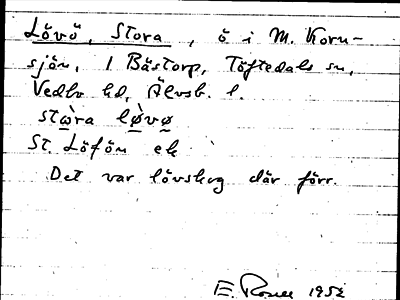 Lövö, Stora, ö i M. Korn-
sjön, 1 Bästorp, Töftedals sn,
Vedbo hd, Älvsb. l.
stὼra lø̀vø
St. Löfön ek
Det var lövskog där förr.
E. 1952